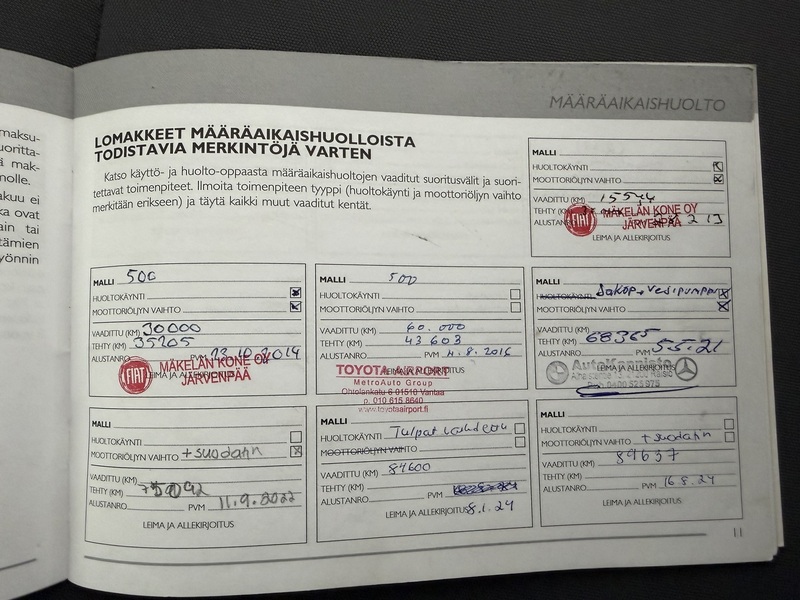 MÄÄRÄAIKAISHUOLTO
maksu-
uoritta-
ä mak-
nolle.
akuu ei
ka ovat
ain tai
tämien
yönnin
LOMAKKEET MÄÄRÄAIKAISHUOLLOISTA
TODISTAVIA MERKINTÖJÄ VARTEN
Katso käyttö- ja huolto-oppaasta määräaikaishuoltojen vaaditut suoritusvälit ja suori-
tettavat toimenpiteet. Ilmoita toimenpiteen tyyppi (huoltokäynti ja moottoriöljyn vaihto
merkitään erikseen) ja täytä kaikki muut vaaditut kentät.
MALLI
HUOLTOKÄYNTI
MOOTTORIÖLJYN VAIHTO
VAADITTU (KM)
TEHTY (KM)
ALUSTANRO
FIAT
MÄKELÄN KONE OY
JÄRVENPÄÄ
LEIMA JA ALLEKIRJOITUS
MALLI 500
HUOLTOKÄYNTI
MOOTTORIÖLJYN VAIHTO
VAADITTU (KM) 30000
TEHTY (KM) 35205
ALUSTANRO PVM 23.10.2014
FIAT
MÄKELÄN KONE OY
JÄRVENPÄÄ
LEIMA JA ALLEKIRJOITUS
MALLI 500
HUOLTOKÄYNTI
MOOTTORIÖLJYN VAIHTO
VAADITTU (KM) 60.000
TEHTY (KM) 43603
ALUSTANRO PVM 4.8.2016
LEIMA JA ALLEKIRJOITUS
TOYOTA AIRPORT
MetroAuto Group
Ohtolankatu 6 01510 Vantaa
p. 010 615 8640
www.toyotaairport.fi
MALLI
HUOLTOKÄYNTI Jakop.+vesipumppu
MOOTTORIÖLJYN VAIHTO
VAADITTU (KM)
TEHTY (KM) 68365
ALUSTANRO 5.5.21
LEIMA JA ALLEKIRJOITUS
MALLI
HUOLTOKÄYNTI
MOOTTORIÖLJYN VAIHTO +suodatin
VAADITTU (KM)
TEHTY (KM)
ALUSTANRO PVM 11.9.2022
LEIMA JA ALLEKIRJOITUS
MALLI
HUOLTOKÄYNTI Tulpat vaihdettu
MOOTTORIÖLJYN VAIHTO
VAADITTU (KM) 84600
TEHTY (KM)
ALUSTANRO PVM
LEIMA JA ALLEKIRJOITUS 8.1.24
MALLI
HUOLTOKÄYNTI
MOOTTORIÖLJYN VAIHTO +suodatin
VAADITTU (KM) 89637
TEHTY (KM)
ALUSTANRO PVM 16.8.24
LEIMA JA ALLEKIRJOITUS
11